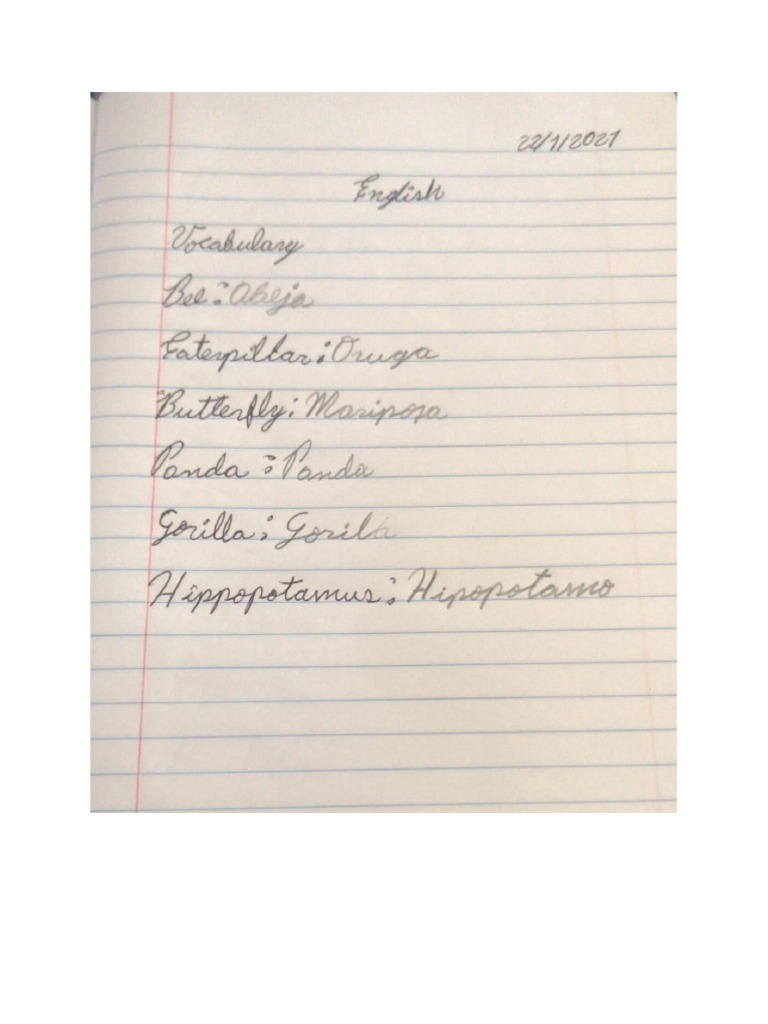 22/1/2021
English
Vocabulary
Bee: Abeja
Caterpillar: Oruga
Butterfly: Mariposa
Panda: Panda
Gorilla: Gorila
Hippopotamus: Hipopotamo